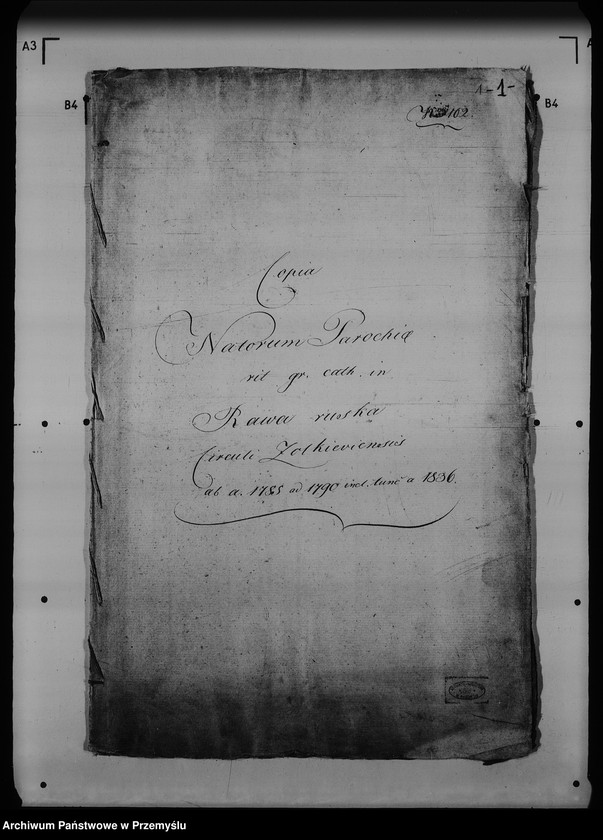 A3
B4
B4
1-1-
102.
Copia
Natorum Parochiæ
rit gr. cath. in
Rawa ruska
Circuli Zolkieviensis
ab a. 1785 ad 1790 incl. tunc a 1836.
Archiwum Państwowe w Przemyślu